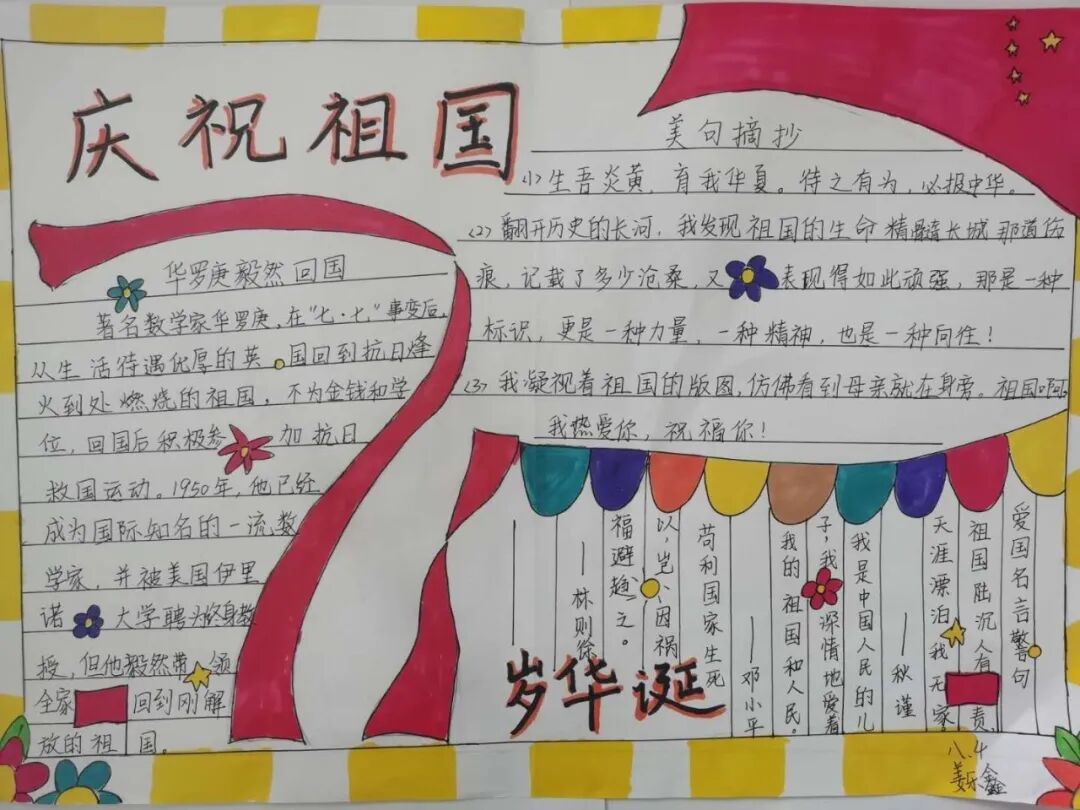 庆祝祖国
71
岁华诞
华罗庚毅然回国
著名数学家华罗庚,在"七·七"事变后,
从生活待遇优厚的英国回到抗日烽
火到处燃烧的祖国,不为金钱和学
位,回国后积极参加抗日
救国运动。1950年,他已经
成为国际知名的一流数
学家,并被美国伊里
诺大学聘为终身教
授,但他毅然带领
全家回到刚解
放的祖国。
美句摘抄
(1)生吾炎黄,育我华夏。待之有为,必报中华。
(2)翻开历史的长河,我发现祖国的生命精髓长城那道伤
痕,记载了多少沧桑,又表现得如此顽强,那是一种
标识,更是一种力量,一种精神,也是一种向往!
(3)我凝视着祖国的版图,仿佛看到母亲就在身旁。祖国啊
我热爱你,祝福你!
爱国名言警句
祖国陆沉人有责,
天涯漂泊我无家
——秋谨
我是中国人民的儿
子,我深情地爱着
我的祖国和人民。
——邓小平
苟利国家生死
以,岂因祸
福避趋之。
——林则徐
八.4
姜乐鑫